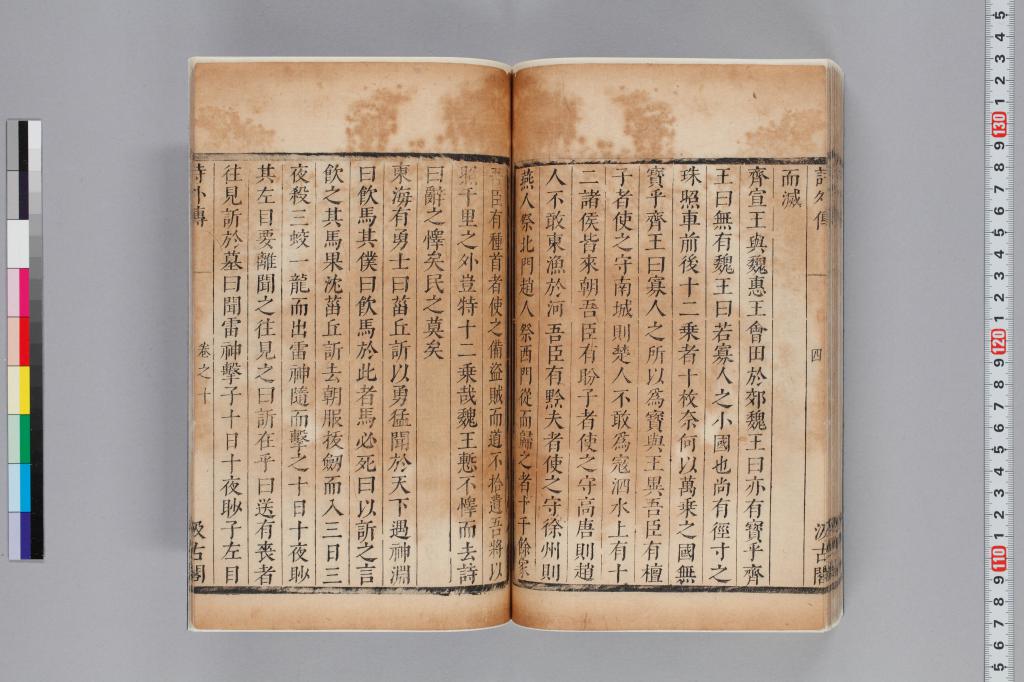 詩外傳
四
汲古閣
而滅
齊宣王與魏惠王會田於郊魏王曰亦有寶乎齊
王曰無有魏王曰若寡人之小國也尚有徑寸之
珠照車前後十二乘者十枚奈何以萬乘之國無
寶乎齊王曰寡人之所以爲寶與王異吾臣有檀
子者使之守南城則楚人不敢爲寇泗水上有十
二諸侯皆來朝吾臣有盼子者使之守高唐則趙
人不敢東漁於河吾臣有黔夫者使之守徐州則
燕人祭北門趙人祭西門從而歸之者十千餘家
吾臣有種首者使之備盜賊而道不拾遺吾將以
照千里之外豈特十二乘哉魏王慙不懌而去詩
曰辭之懌矣民之莫矣
東海有勇士曰菑丘訢以勇猛聞於天下過神淵
曰飲馬其僕曰飲馬於此者馬必死曰以訢之言
飲之其馬果沈菑丘訢去朝服拔劒而入三日三
夜殺三蛟一龍而出雷神隨而擊之十日十夜眇
其左目要離聞之往見之曰訢在乎曰送有喪者
往見訢於墓曰聞雷神擊子十日十夜眇子左目
詩外傳
卷之十
汲古閣
5
4
3
2
1
130
9
8
7
6
5
4
3
2
1
120
9
8
7
6
5
4
3
2
1
110
9
8
7
6
5